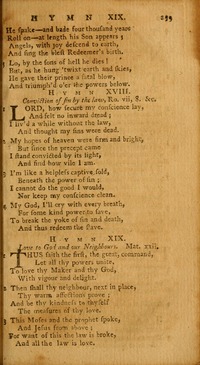 HYMN XIX. 259
He spake—and bade four thousand years
Roll on—at length his Son appears;
Angels, with joy descend to earth,
And sing the blest Redeemer's birth.
Lo, by the sons of hell he dies!
But, as he hung 'twixt earth and skies,
He gave their prince a fatal blow,
And triumph'd o'er the powers below.
HYMN XVIII.
Conviction of sin by the law, Ro. vii, 8. &c.
LORD, how secure my conscience lay,
And felt no inward dread;
I liv'd a while without the law,
And thought my sins were dead.
2 My hopes of heaven were firm and bright,
But since the precept came
I stand convicted by its light,
And find how vile I am.
3 I'm like a helpless captive, sold,
Beneath the power of sin;
I cannot do the good I would,
Nor keep my conscience clean.
4 My God, I'll cry with every breath,
For some kind power to save,
To break the yoke of sin and death,
And thus redeem the slave.
HYMN XIX.
Love to God and our Neighbours. Mat. xxii,
THUS saith the first, the great, command,
Let all thy powers unite,
To love thy Maker and thy God,
With vigour and delight.
2 Then shall thy neighbour, next in place,
Thy warm affections prove;
And be thy kindness to thyself
The measures of thy love.
3 This Moses and the prophet spake,
And Jesus from above;
For want of this the law is broke,
And all the law is love.